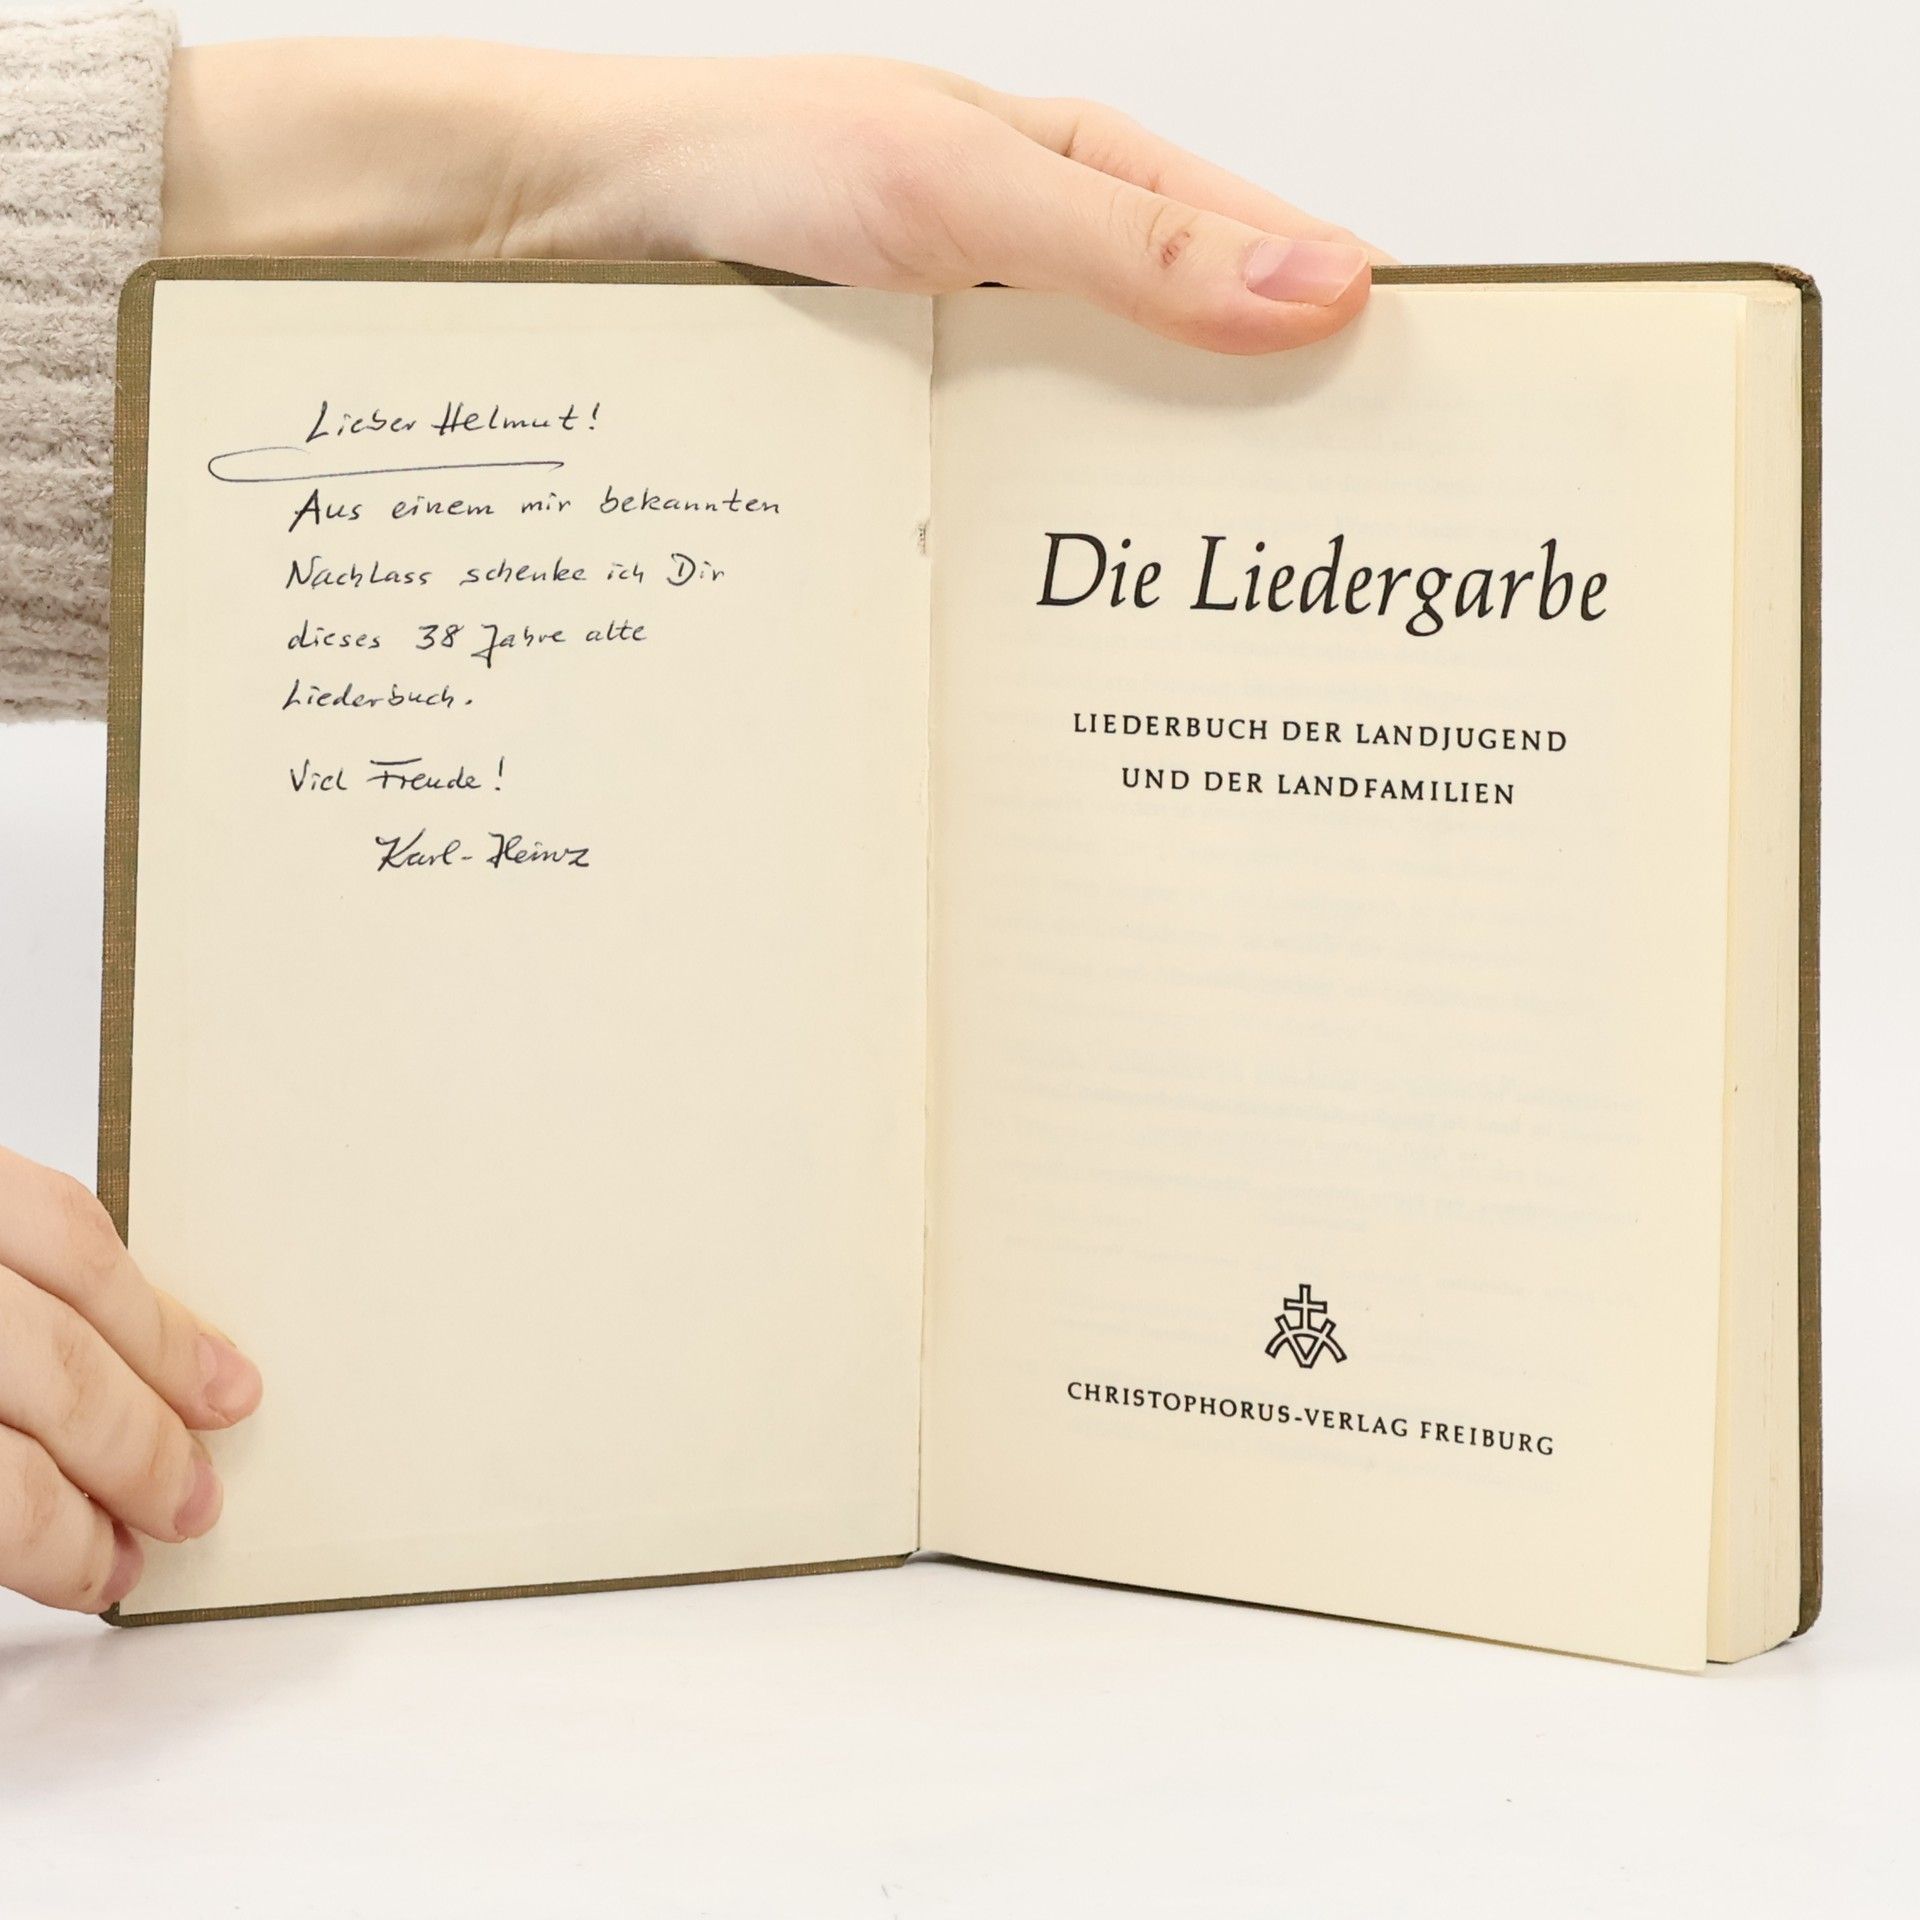 Lieber Helmut!
Aus einem mir bekannten
Nachlass schenke ich Dir
dieses 38 Jahre alte
Liederbuch.
Viel Freude!
Karl-Heinz
Die Liedergarbe
LIEDERBUCH DER LANDJUGEND
UND DER LANDFAMILIEN
CHRISTOPHORUS-VERLAG FREIBURG